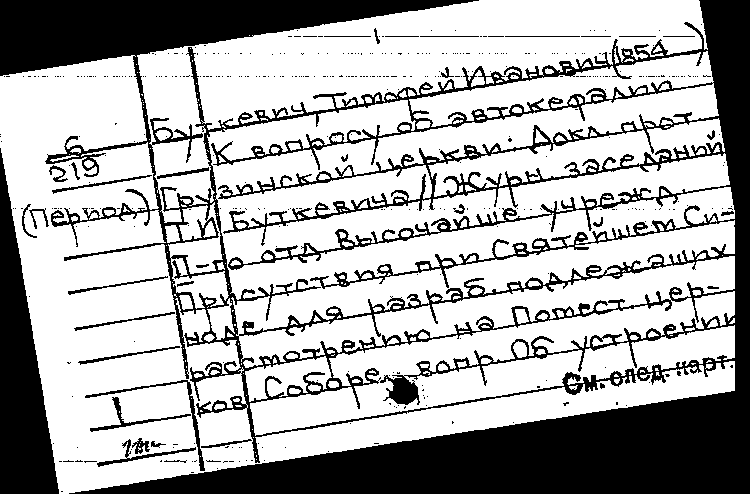 1
Буткевич, Тимофей Иванович (1854 )
К вопросу об автокефалии
Грузинской церкви. Докл. прот.
Т.И. Буткевича // Журн. заседаний
П-го отд. Высочайше учрежд.
Присутствия при Святейшем Си-
ноде для разраб. подлежащих
рассмотрению на Помест. цер-
ков. Соборе вопр. Об устроении
См. след. карт.
Б
219
(Период)
1